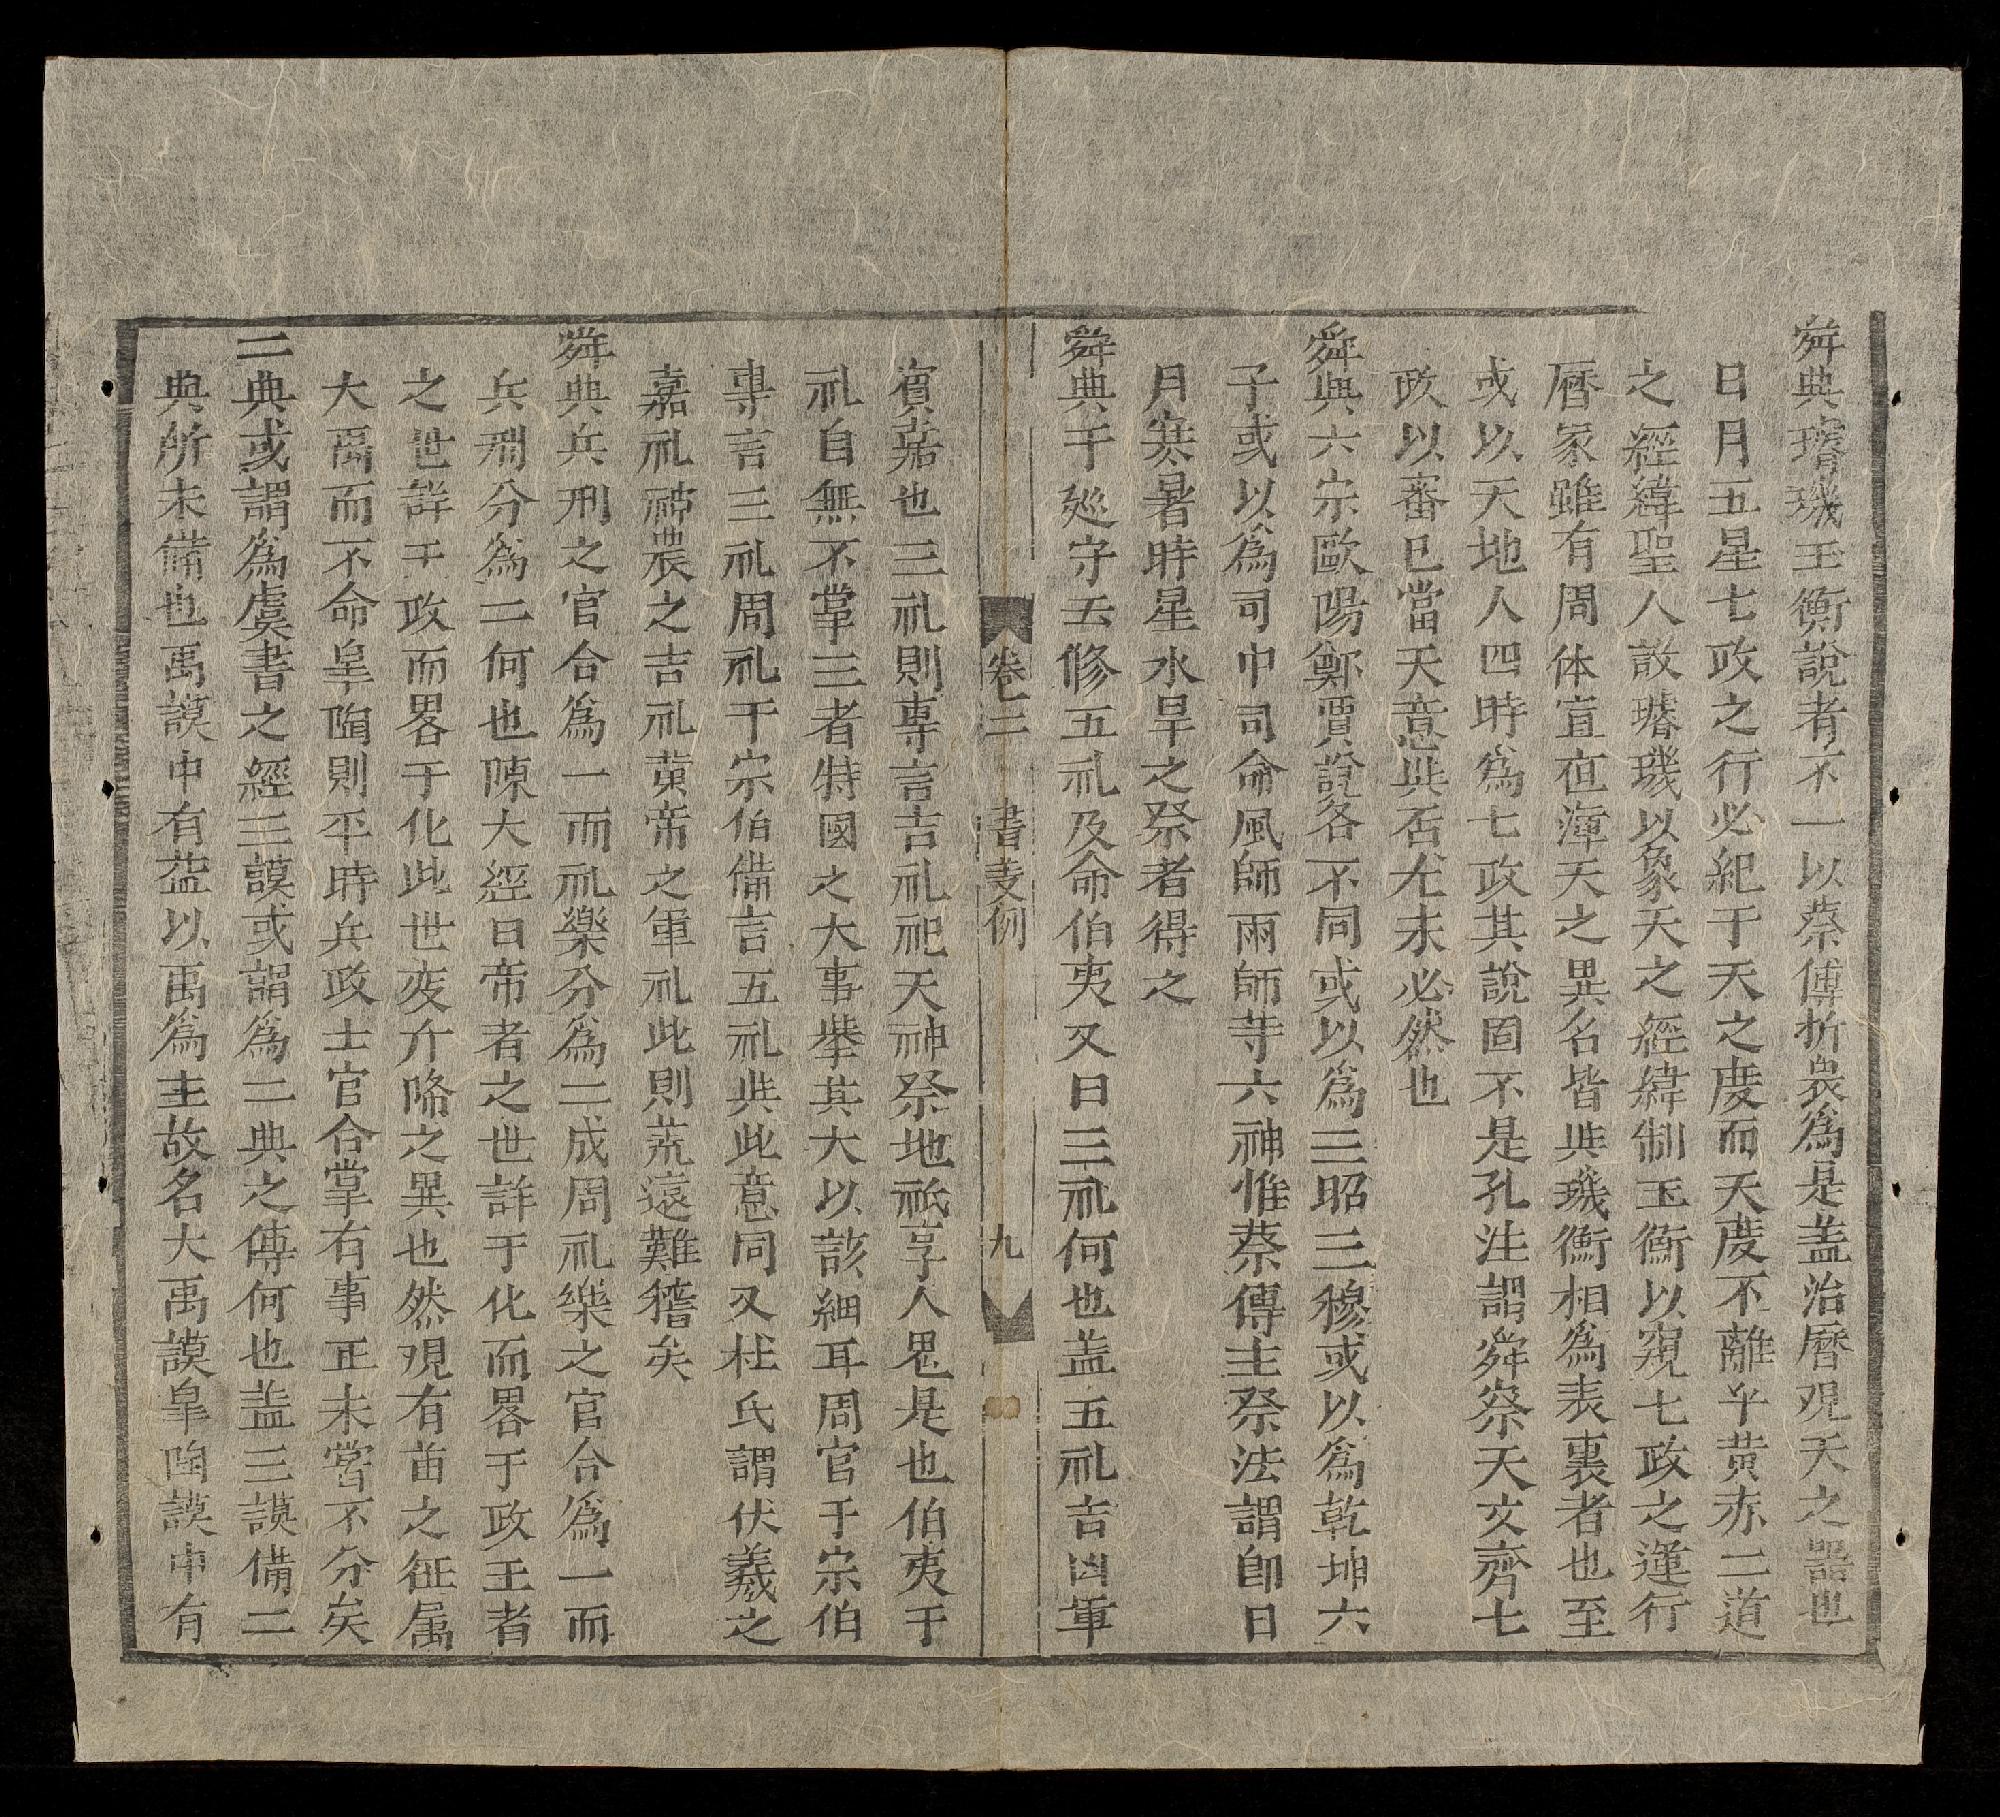 舜典璿璣玉衡說者不一以蔡傳折衷為是盖治曆观天之器也
日月五星七政之行必紀于天之度而天度不離乎黄赤二道
之經緯聖人設璿璣以象天之經緯制玉衡以窺七政之運行
曆家雖有周体宣夜渾天之異名皆與璣衡相為表裏者也至
或以天地人四時為七政其說固不是孔注謂舜察天文齊七
政以審已當天意與否尤未必然也
舜典六宗歐陽鄭賈說各不同或以為三昭三穆或以為乾坤六
子或以為司中司命風師雨師等六神惟蔡傳主祭法謂即日
月寒暑時星水旱之祭者得之
舜典于廵守云修五礼及命伯夷又曰三礼何也盖五礼吉凶軍
卷二　書支例　九
賓嘉也三礼則專言吉礼祀天神祭地祗享人鬼是也伯夷于
礼自無不掌三者特國之大事舉其大以該細耳周官于宗伯
專言三礼周礼于宗伯備言五礼與此意同又杜氏謂伏羲之
嘉礼神農之吉礼黄帝之軍礼此則荒遠難稽矣
舜典兵刑之官合為一而礼樂分為二成周礼樂之官合為一而
兵刑分為二何也陳大經曰帝者之世詳于化而畧于政王者
之世詳于政而畧于化此世変升降之異也然观有苗之征属
大禹而不命皐陶則平時兵政士官合掌有事正未甞不分矣
二典或謂為虞書之經三謨或謂為二典之傳何也盖三謨備二
典所未備也禹謨中有益以禹為主故名大禹謨皐陶謨中有